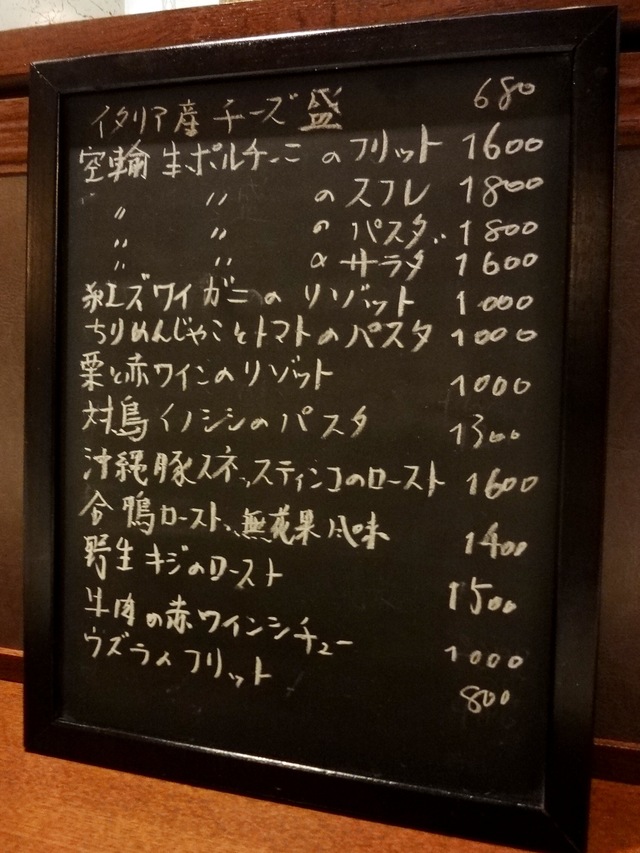 イタリア産チーズ盛 680
空輸生ポルチーニのフリット 1600
〃 〃 のスフレ 1800
〃 〃 のパスタ 1800
〃 〃 のサラダ 1600
紅ズワイガニのリゾット 1000
ちりめんじゃことトマトのパスタ 1000
栗と赤ワインのリゾット 1000
対島イノシシのパスタ 1300
沖縄豚スネ、スティンコのロースト 1600
合鴨ロースト、無花果風味 1400
野生キジのロースト 1500
牛肉の赤ワインシチュー 1000
ウズライフリット 800